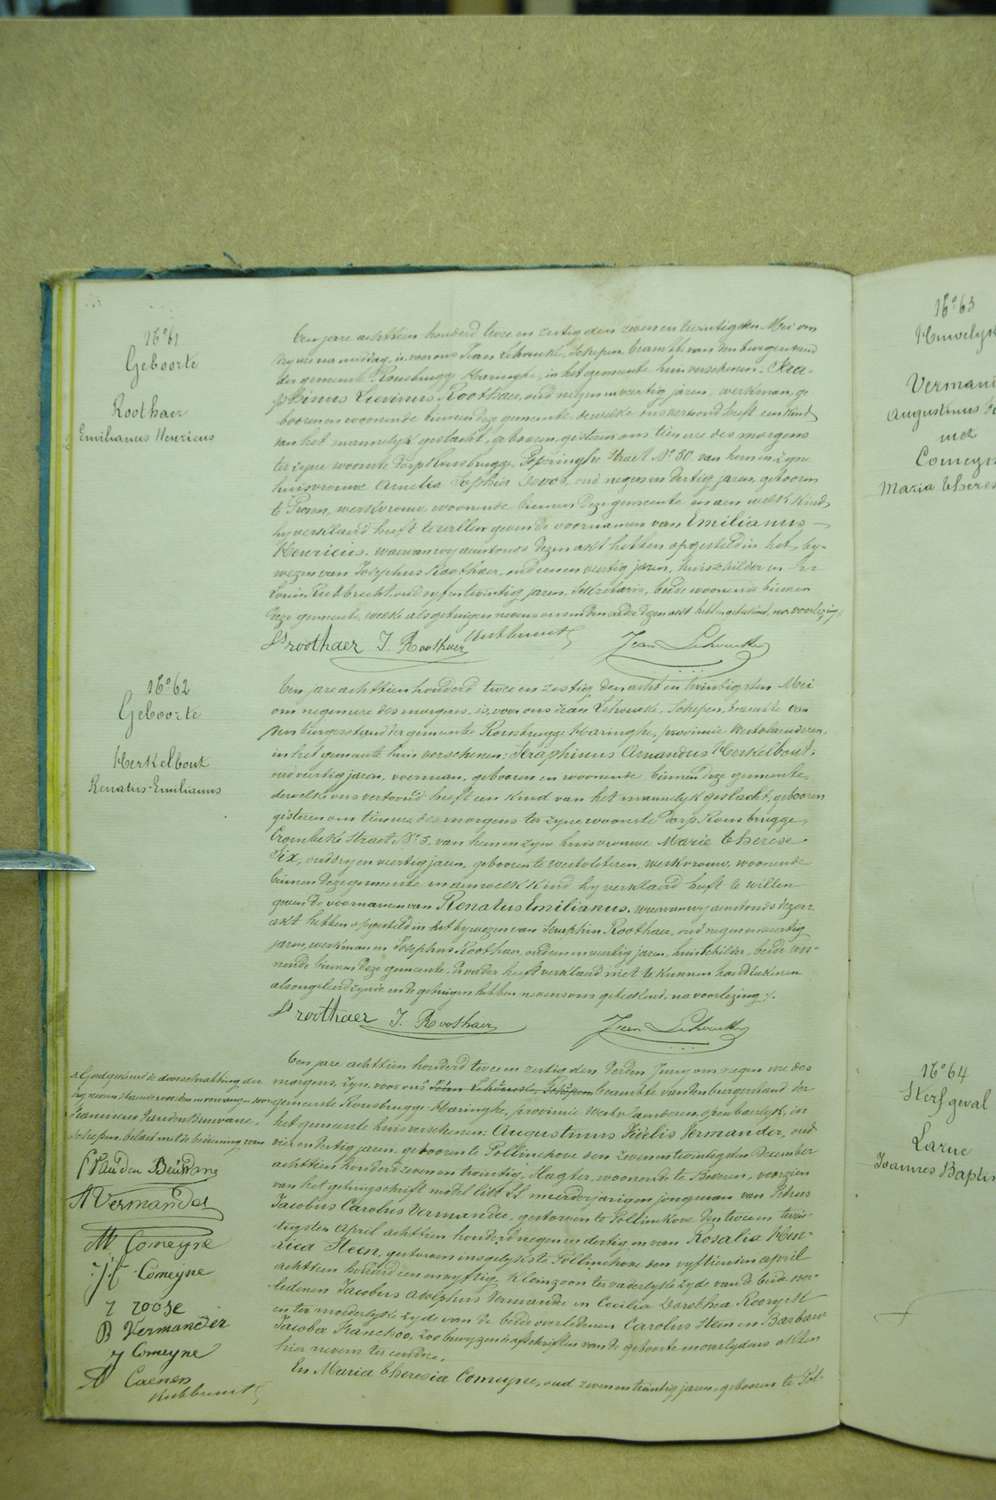 N° 61
Geboorte
Roothaer
Emilianus Henricus
Een jare achttien honderd twee en zestig den zeven en twintigsten Mei om
namiddag, is voor ons Jean Lehoucke, Schepen, beamte van den burgerstand
der gemeente Rousbrugge Haringhe, in het gemeente huis verschenen: Sera-
phinus Livinus Roothaer, oud negen en veertig jaren, werkman, ge-
boren en woonende binnen deze gemeente, dewelke ons vertoond heeft een kind
van het mannelyk geslacht, geboren gisteren om tien ure des morgens
ter zyne woonste Dorp Rousbrugge, Poperinghe Straet N° 50, van hem en zyne
huisvrouwe Amelia Sophia Devos, oud negen en dertig jaren, geboren
te Proven, werkvrouw, woonende binnen deze gemeente en aen welk kind
hy verklaerd heeft te willen geven de voornamen van Emilianus
Henricus. waervan wy aenstonds dezen akt hebben opgesteld in het by-
wezen van Josephus Roothaer, oud en veertig jaren, huisschilder en
oud vyf en twintig jaren, Sekretaris, beide woonende binnen
deze gemeente, welke als getuigen nevens ons den akt hebben geteekend, na voorlezing.
S roothaer J. Roothaer Jean Lehoucke
N° 62
Geboorte
Herkelbout
Renatus-Emilianus
Een jare achttien honderd twee en zestig den acht en twintigsten Mei
om negen ure des morgens, is voor ons Jean Lehoucke, Schepen, beamte van
den burgerstand der gemeente Rousbrugge Haringhe, provincie Westvlaenderen,
in het gemeente huis verschenen: Seraphinus Amandus Herkelbout,
oud veertig jaren, voerman, geboren en woonende binnen deze gemeente,
dewelke ons vertoond heeft een kind van het mannelyk geslacht, geboren
gisteren om tien ure des morgens ter zyne woonste Dorp Rousbrugge,
Crombeke Straet N° 5, van hem en zyne huisvrouwe Marie Therese
Six, oud dry en veertig jaren, geboren te Westvleteren, werkvrouw, woonende
binnen deze gemeente en aen welk kind hy verklaerd heeft te willen
geven de voornamen van Renatus Emilianus. waervan wy aenstonds dezen
akt hebben opgesteld in het bywezen van Seraphin Roothaer, oud negen en veertig
jaren, werkman en Josephus Roothaer, oud en veertig jaren, huisschilder, beide woo-
nende binnen deze gemeente. De vader heeft verklaerd niet te kunnen handteekenen
als ongeleerd zynde en de getuigen hebben nevens ons geteekend, na voorlezing.
S roothaer J. Roothaer Jean Lehoucke
Een jare achttien honderd twee en zestig den derden Juny om negen ure des
morgens, zyn voor ons Jean Lehoucke, Schepen beamte van den burgerstand der
gemeente Rousbrugge Haringhe, provincie West vlaenderen, openbaerlyk, in
het gemeente huis verschenen: Augustinus Fidelis Vermander, oud
vier en dertig jaren, geboren te Pollinchove den zeven en twintigsten December
achttien honderd zeven en twintig, Slagter, woonende te Beveren, voorzien
van het getuigschrift model litt. meerderjarigen jongman van Petrus
Jacobus Carolus Vermander, gestorven te Pollinkove den twee en twin-
tigsten April achttien honderd negen en dertig en van Rosalia Hen-
rica Steen, gestorven insgelyks te Pollinchove den vyftienden april
achttien honderd een en vyftig, kleinzoon ter vaderlyke zyde van de beide over-
ledenen Jacobus Adolphus Vermander en Cecilia Dorothea Rooryck
en ter moederlyke zyde van de beide overledenen Carolus Steen en Barbara
Jacoba Franchoo, zoo bewyzende afschriften van de geboorte en overlydens akten
hier nevens ten einde.
En Maria Theresia Comeyne, oud zeven en twintig jaren, geboren te Pol-
Goedgekeurd de doorschrabbing der
Franciscus Vanden Beuwane,
schepen, belast met de bediening van
F Vanden Beuwane
A Vermander
M Comeyne
J. F. Comeyne
roose
B Vermander
Comeyne
Caenen
N° 63
Huwelyk
Vermand
Augustinus Fi
met
Comeyn
Maria Theres
N° 64
Sterfgeval
Larue
Joannes Baptis